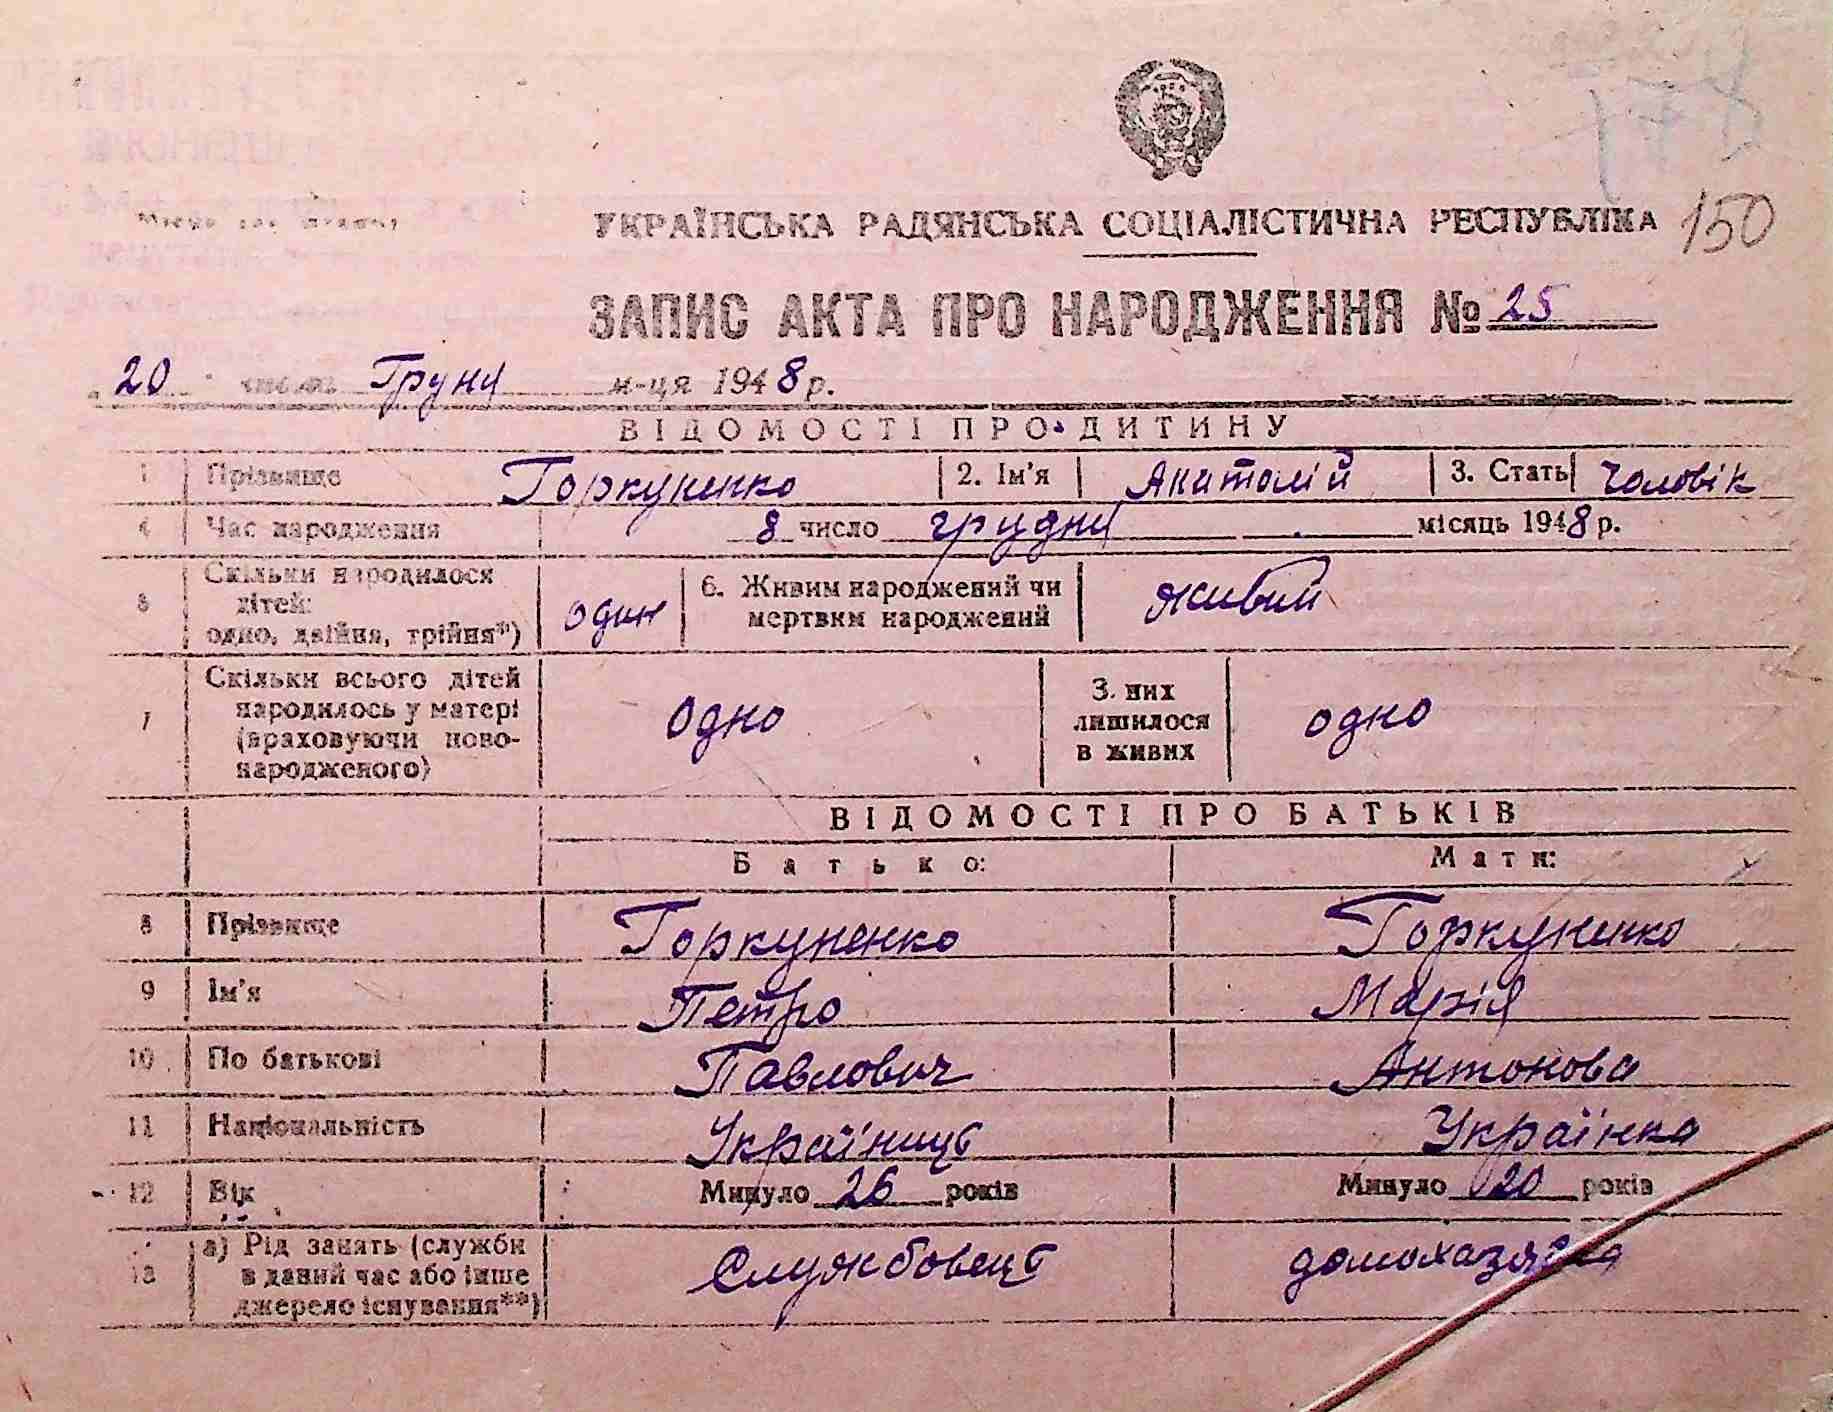 УКРАЇНСЬКА РАДЯНСЬКА СОЦІАЛІСТИЧНА РЕСПУБЛІКА 150
ЗАПИС АКТА ПРО НАРОДЖЕННЯ № 25
20 числа Грудня м-ця 1948 р.
ВІДОМОСТІ ПРО ДИТИНУ
1 Прізвище Горкуненко 2. Ім'я Анатолій 3. Стать Чоловік
4 Час народження 8 число грудня місяць 1948 р.
5 Скільки народилося
дітей:
одно, двійня, трійня*) один 6. Живим народжений чи
мертвим народжений живим
7 Скільки всього дітей
народилось у матері
(враховуючи ново-
народженого) Одно З них
лишилося
в живих одно
ВІДОМОСТІ ПРО БАТЬКІВ
Батько: Мати:
8 Прізвище Горкуненко Горкуненко
9 Ім'я Петро Марія
10 По батькові Павлович Антонова
11 Національність Українець Українка
12 Вік Минуло 26 років Минуло 20 років
13 а) Рід занять (служби
в даний час або інше
джерело існування**) Службовець домохазяйка